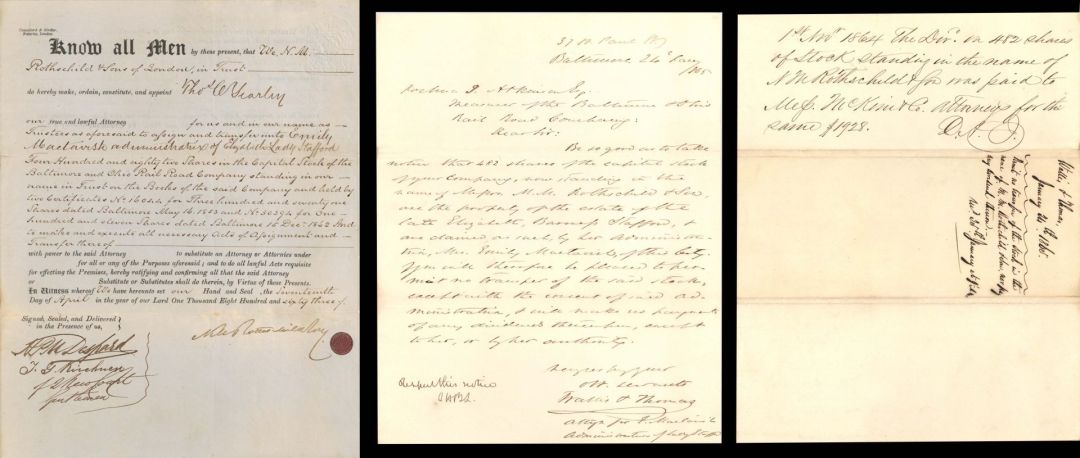 Know all Men by these present, that We N. M.
Rothschild & Sons of London, in Trust
do hereby make, ordain, constitute, and appoint Thos. C. Yearley
our true and lawful Attorney for us and in our name as
Trustees as aforesaid to assign and transfer unto Emily
Mactavish administratrix of Elizabeth Lady Stafford
Four Hundred and eighty two Shares in the Capital Stock of the
Baltimore and Ohio Rail Road Company standing in our
name in Trust on the Books of the said Company and held by
two Certificates No. for Three hundred and seventy one
Shares dated Baltimore May 16. 1853 and No. for One
hundred and eleven Shares dated Baltimore 15 Decr. And
to make and execute all necessary Acts of Assignment and
Transfer thereof
with power to the said Attorney to substitute an Attorney or Attornies under
for all or any of the Purposes aforesaid; and to do all lawful Acts requisite
for effecting the Premises, hereby ratifying and confirming all that the said Attorney
or Substitute or Substitutes shall do therein, by Virtue of these Presents.
In Witness whereof We have hereunto set our Hand and Seal the Seventeenth
Day of April in the year of our Lord One Thousand Eight Hundred and sixty three
Signed, Sealed, and Delivered
in the Presence of us,
37 St Paul St
Baltimore 24th Jany
Joshua J. Atkinson Esq.
Treasurer of the Baltimore & Ohio
Rail Road Company:
Dear Sir:
Be so good as to take
notice that 482 shares of the capital stock
of your Company, now standing in the
name of Messrs N. M. Rothschild & Son,
are the property of the estate of the
late Elizabeth, Baroness Stafford, &
are claimed as such, by her Administra-
trix, Mrs. Emily Mactavish, of this City.
You will therefore be pleased to per-
mit no transfer of the said stock,
except with the consent of said ad-
ministratrix, & will make no payments
of any dividend thereupon, except
to her, or by her authority.
Very resply your
obt. servants
Wallis & Thomas
attys for E. Mactavish
Administratrix of Lady Stafford
Respect this notice
1st Novr 1864 The Divd. on 482 shares
of Stock standing in the name of
N M Rothschild & Son was paid to
Mess. McKim & Co. attorneys for the
same $1928.
Wallis & Thomas,
January 24